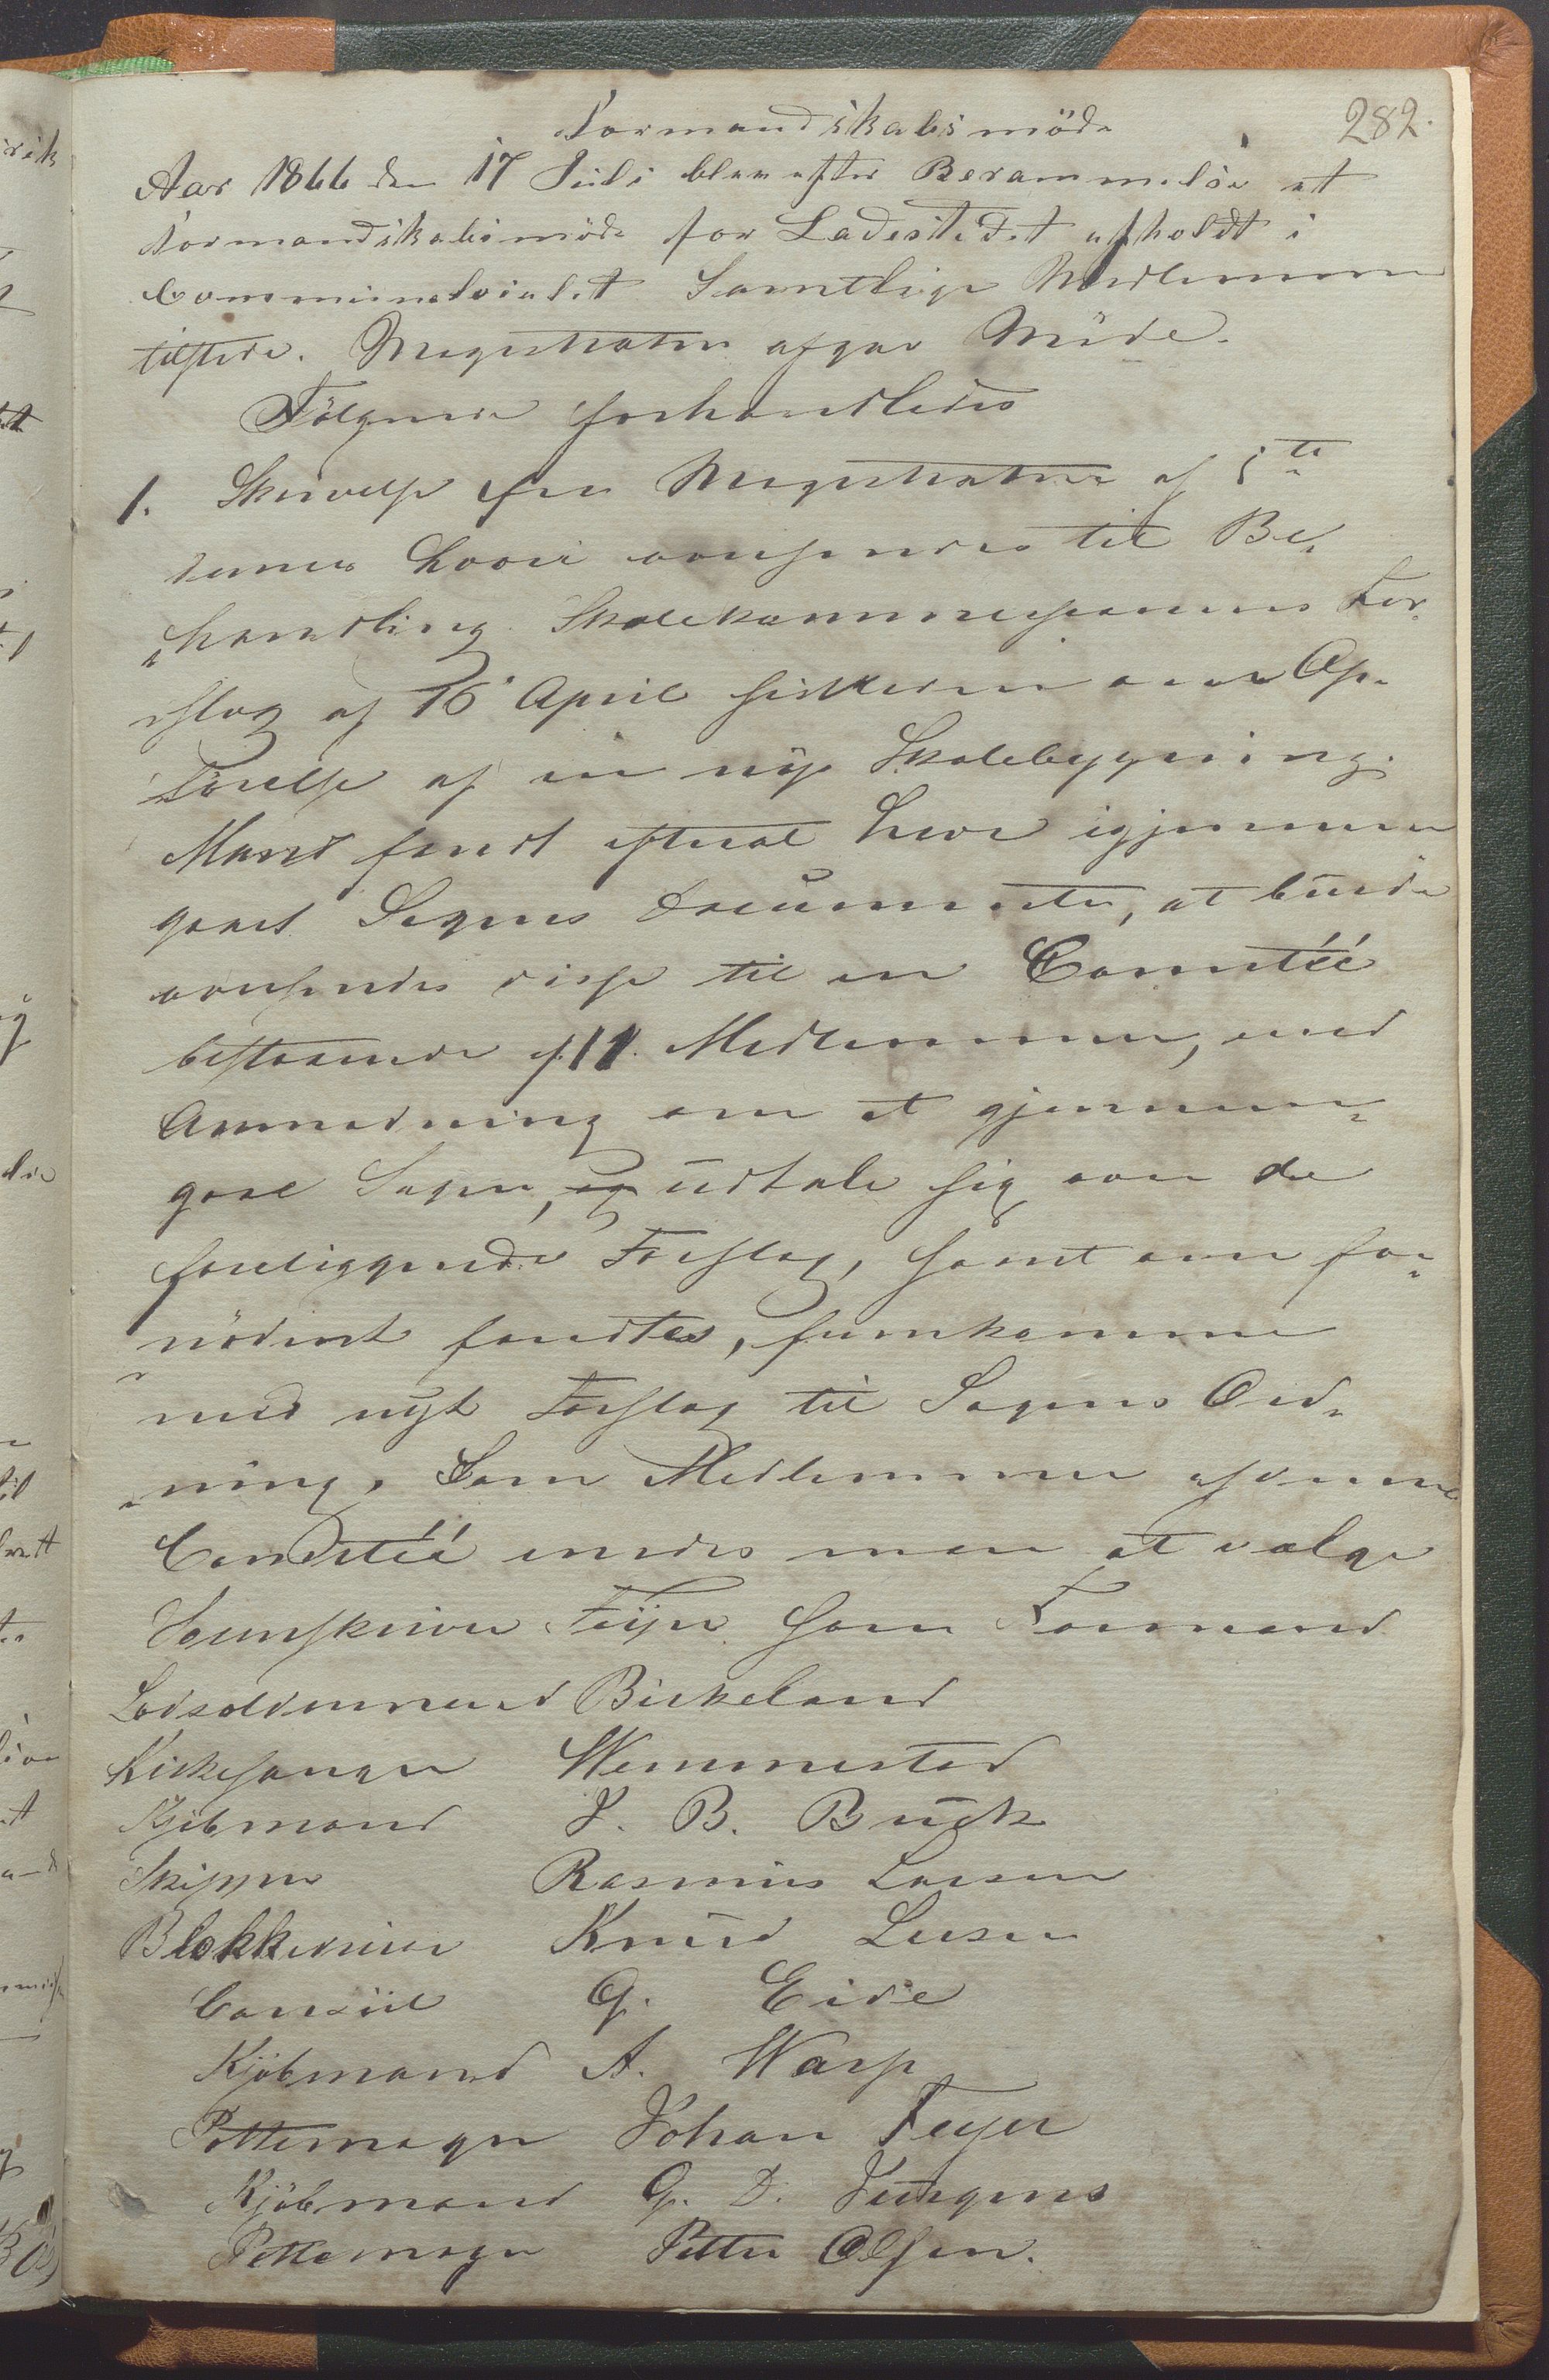 282.
Formandskabsmöde
Aar 1866 den 17 Juli blev efter Berammelse et
Formandskabsmöde for Ladestedet afholdt i
Communelocalet Samtlige Medlemmer
tilstede. Magistraten afgav Möde.
Fölgende forhandledes
1. Skrivelse fra Magistraten af 5te
dennes hvori oversendes til Be„
„handling Skolekommissionens For„
„slag af 16 April sidstleden om Op„
„förelse af en nÿe Skolebygning.
Mand fandt efterat have igjennem
gaaet Sagens Documenter, at burde
oversendes disse til en Comitéé
bestaaende af 11. Medlemmer, med
Anmodning om at gjennem„
gaae Sagen, og udtale sig om de
foreliggende Forslag, samt om for„
„nödent fandtes, fremkomme
med nyt Forslag til Sagens Ord„
„ning. Som Medlemmer af denne
Comitéé enedes man at vælge
Sorenskriver Feÿer som Formand
Lodsoldermand Birkeland
Kirkesanger Wemmestad
Kjöbmand J. B. Buck
Skipper Rasmus Larsen
Blokkedreier Knud Larsen
Consül G. Eide
Kjöbmand A. Warp
Pottemager Johan Feyer
Kjöbmand G. D. Jürgens
Pottemager Petter Olsen.